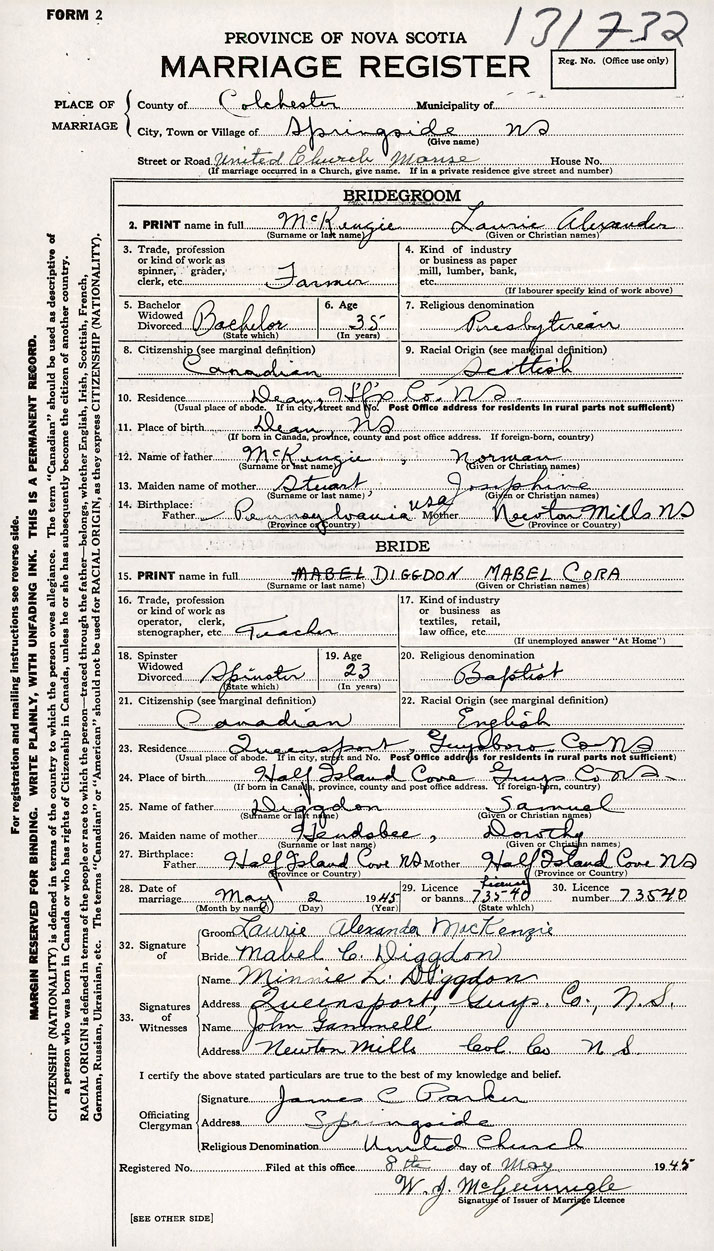 FORM 2
131732
PROVINCE OF NOVA SCOTIA
MARRIAGE REGISTER
Reg. No. (Office use only)
PLACE OF MARRIAGE
County of Colchester Municipality of
City, Town or Village of Springside NS
(Give name)
Street or Road United Church Manse House No.
(If marriage occurred in a Church, give name. If in a private residence give street and number)
BRIDEGROOM
2. PRINT name in full McKenzie Laurie Alexander
(Surname or last name) (Given or Christian names)
3. Trade, profession or kind of work as spinner, grader, clerk, etc. Farmer
4. Kind of industry or business as paper mill, lumber, bank, etc.
(If labourer specify kind of work above)
5. Bachelor Widowed Divorced Bachelor
(State which)
6. Age 35
(In years)
7. Religious denomination
Presbyterian
8. Citizenship (see marginal definition)
Canadian
9. Racial Origin (see marginal definition)
Scottish
10. Residence Dean, Hfx Co. NS.
(Usual place of abode. If in city, street and No. Post Office address for residents in rural parts not sufficient)
11. Place of birth Dean, NS
(If born in Canada, province, county and post office address. If foreign-born, country)
12. Name of father McKenzie, Norman
(Surname or last name) (Given or Christian names)
13. Maiden name of mother Stuart, Josephine
(Surname or last name) (Given or Christian names)
14. Birthplace: Father Pennsylvania USA Mother Newton Mills NS
(Province or Country) (Province or Country)
BRIDE
15. PRINT name in full MABEL DIGGDON MABEL CORA
(Surname or last name) (Given or Christian names)
16. Trade, profession or kind of work as operator, clerk, stenographer, etc. Teacher
17. Kind of industry or business as textiles, retail, law office, etc.
(If unemployed answer "At Home")
18. Spinster Widowed Divorced Spinster
(State which)
19. Age 23
(In years)
20. Religious denomination
Baptist
21. Citizenship (see marginal definition)
Canadian
22. Racial Origin (see marginal definition)
English
23. Residence Queensport, Guysboro. Co NS
(Usual place of abode. If in city, street and No. Post Office address for residents in rural parts not sufficient)
24. Place of birth Half Island Cove Guys Co NS.
(If born in Canada, province, county and post office address. If foreign-born, country)
25. Name of father Diggdon Samuel
(Surname or last name) (Given or Christian names)
26. Maiden name of mother Hendsbee, Dorothy
(Surname or last name) (Given or Christian names)
27. Birthplace: Father Half Island Cove NS Mother Half Island Cove NS
(Province or Country) (Province or Country)
28. Date of marriage May 2 1945
(Month by name) (Day) (Year)
29. Licence or banns License 73540
(State which)
30. Licence number 73540
32. Signature of
Groom Laurie Alexander MacKenzie
Bride Mabel C. Diggdon
33. Signatures of Witnesses
Name Minnie L. Diggdon
Address Queensport, Guys. Co., N.S.
Name John Gammell
Address Newton Mills Col. Co N S.
I certify the above stated particulars are true to the best of my knowledge and belief.
Officiating Clergyman
Signature James C Parker
Address Springside
Religious Denomination United Church
Registered No. Filed at this office 8th day of May 1945
W. J. McGunnigle
Signature of Issuer of Marriage Licence
[SEE OTHER SIDE]
For registration and mailing instructions see reverse side.
MARGIN RESERVED FOR BINDING. WRITE PLAINLY, WITH UNFADING INK. THIS IS A PERMANENT RECORD.
CITIZENSHIP (NATIONALITY) is defined in terms of the country to which the person owes allegiance. The term "Canadian" should be used as descriptive of
a person who was born in Canada or who has rights of Citizenship in Canada, unless he or she has subsequently become the citizen of another country.
RACIAL ORIGIN is defined in terms of the people or race to which the person—traced through the father—belongs, whether English, Irish, Scottish, French,
German, Russian, Ukrainian, etc. The terms "Canadian" or "American" should not be used for RACIAL ORIGIN, as they express CITIZENSHIP (NATIONALITY).